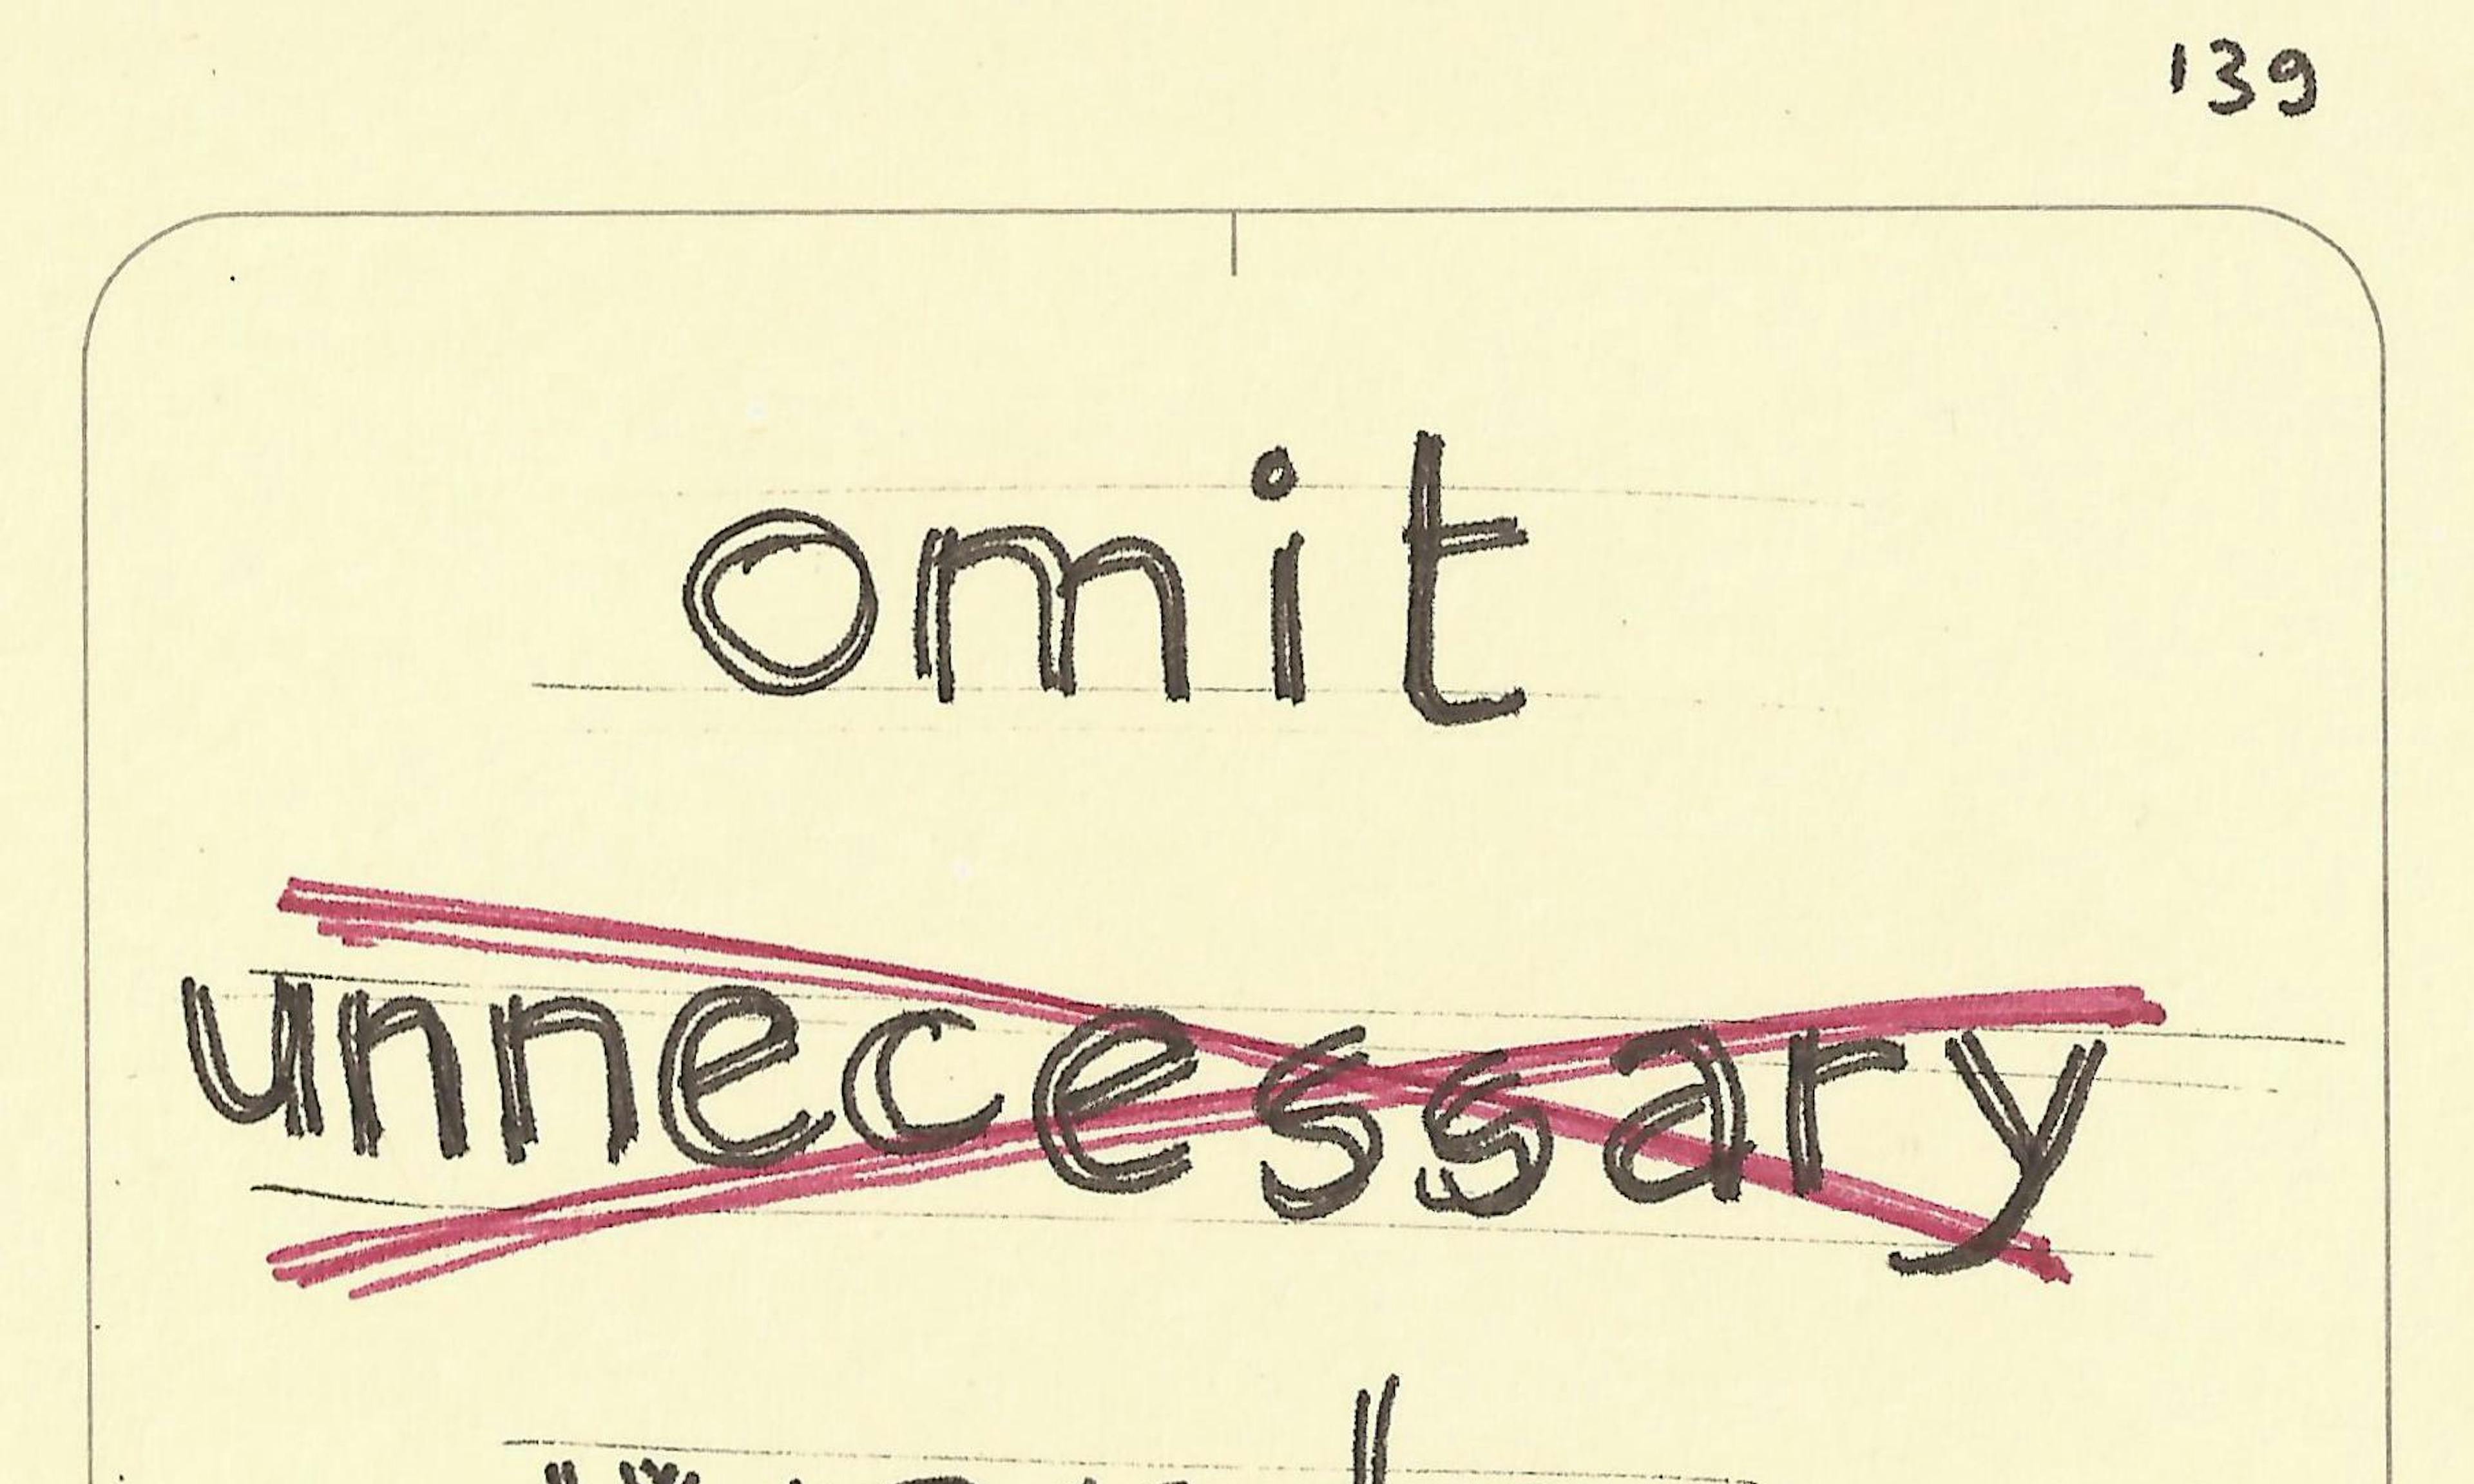 139
omit
unnecessary